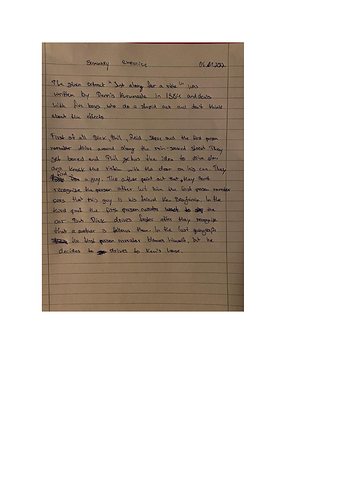 Summary exercise
The given extract "Just along for a ride" was
written by Dennis in 1984 and deals
with five boys, who do a stupid act and don't think
about the effects.
First of all Dick, Phil, Reid, Steve and the first person
narrator drive around along the rain-soaked street. They
get bored and Phil the idea to drive
and knock the with the door on his car. They
a guy. The author point out that, they
recognize the person after hit him the first person narrator
that this guy is his friend Ken In the
third part the first person narrator want to stop the
car But Dick drives faster after they recognize
that a another is follows them. In the last paragraph
the first person narrator blames himself, but he
decides to drives to Ken's house.